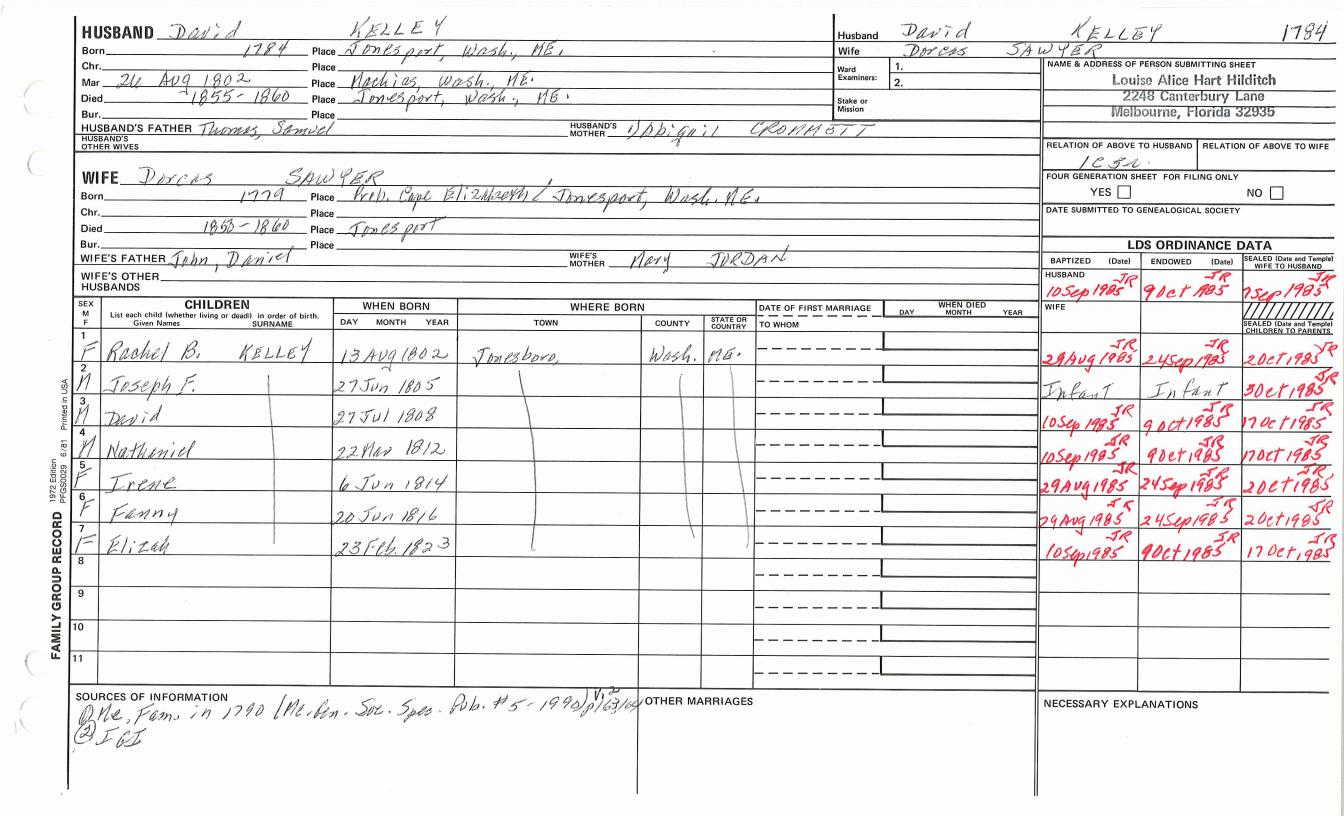 HUSBAND David KELLEY
Born 1784 Place Jonesport, Wash., ME.
Chr. Place
Mar 26 Aug 1802 Place Machias, Wash. ME.
Died 1855-1860 Place Jonesport, Wash., ME.
Bur. Place
HUSBAND'S FATHER Thomas, Samuel HUSBAND'S MOTHER Abigail CROMMETT
HUSBAND'S OTHER WIVES
WIFE Dorcas SAWYER
Born 1779 Place Prob. Cape Elizabeth / Jonesport, Wash. ME.
Chr. Place
Died 1853-1860 Place Jonesport
Bur. Place
WIFE'S FATHER John, Daniel WIFE'S MOTHER Mary JORDAN
WIFE'S OTHER HUSBANDS
Husband David KELLEY 1784
Wife Dorcas SAWYER
Ward Examiners: 1.
2.
Stake or Mission
NAME & ADDRESS OF PERSON SUBMITTING SHEET
Louise Alice Hart Hilditch
2248 Canterbury Lane
Melbourne, Florida 32935
RELATION OF ABOVE TO HUSBAND RELATION OF ABOVE TO WIFE
FOUR GENERATION SHEET FOR FILING ONLY
YES NO
DATE SUBMITTED TO GENEALOGICAL SOCIETY
LDS ORDINANCE DATA
BAPTIZED (Date) ENDOWED (Date) SEALED (Date and Temple) WIFE TO HUSBAND
HUSBAND JR JR JR
10 Sep 1985 9 Oct 1985 7 Sep 1985
WIFE
SEALED (Date and Temple) CHILDREN TO PARENTS
SEX M F CHILDREN WHEN BORN WHERE BORN DATE OF FIRST MARRIAGE WHEN DIED
List each child (whether living or dead) in order of birth. DAY MONTH YEAR TOWN COUNTY STATE OR COUNTRY TO WHOM DAY MONTH YEAR
Given Names SURNAME
1 F Rachel B. KELLEY 13 Aug 1802 Jonesboro, Wash. ME. 29 Aug 1985 JR 24 Sep 1985 JR 2 Oct 1985 JR
2 M Joseph F. 27 Jun 1805 Infant Infant 3 Oct 1985 JR
3 M David 27 Jul 1808 10 Sep 1985 JR 9 Oct 1985 JR 17 Oct 1985 JR
4 M Nathaniel 22 Mar 1812 10 Sep 1985 JR 9 Oct 1985 JR 17 Oct 1985 JR
5 F Irene 6 Jun 1814 29 Aug 1985 JR 24 Sep 1985 JR 2 Oct 1985 JR
6 F Fanny 20 Jun 1816 29 Aug 1985 JR 24 Sep 1985 JR 2 Oct 1985 JR
7 F Elizah 23 Feb. 1823 10 Sep 1985 JR 9 Oct 1985 JR 17 Oct 1985 JR
8
9
10
11
FAMILY GROUP RECORD 1972 Edition PFGS0029 6/81 Printed in USA
SOURCES OF INFORMATION
① Me. Fam. in 1790 (Me. Gen. Soc. Spec. Pub. #5-1990) V. 2 p163/164
② IGI
OTHER MARRIAGES
NECESSARY EXPLANATIONS